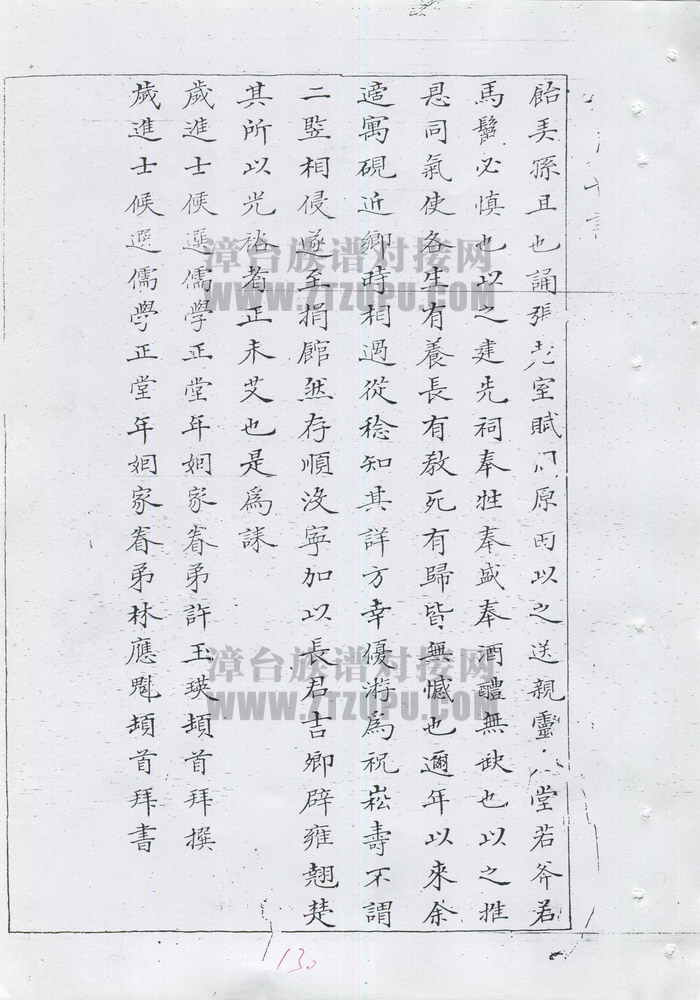 飴美孫且也誦張 室賦 原西以之送親靈 堂若斧若
馬鬣必慎也以之建先祠奉牲奉盛奉酒醴無缺也以之推
恩同氣使各生有養長有教死有歸皆無憾也邇年以來余
適寓硯近鄉時相過從稔知其詳方幸優游為祝崧壽不謂
二監相侵遂至捐館然存順沒寧加以長君吉卿辟雍翹楚
其所以光裕者正未艾也是為誄
歲進士候選儒學正堂年姻家眷弟許玉瑛頓首拜撰
歲進士候選儒學正堂年姻家眷弟林應魁頓首拜書
漳台族谱对接网
WWW.ZTZUPU.COM
漳台族谱对接网
WWW.ZTZUPU.COM
130